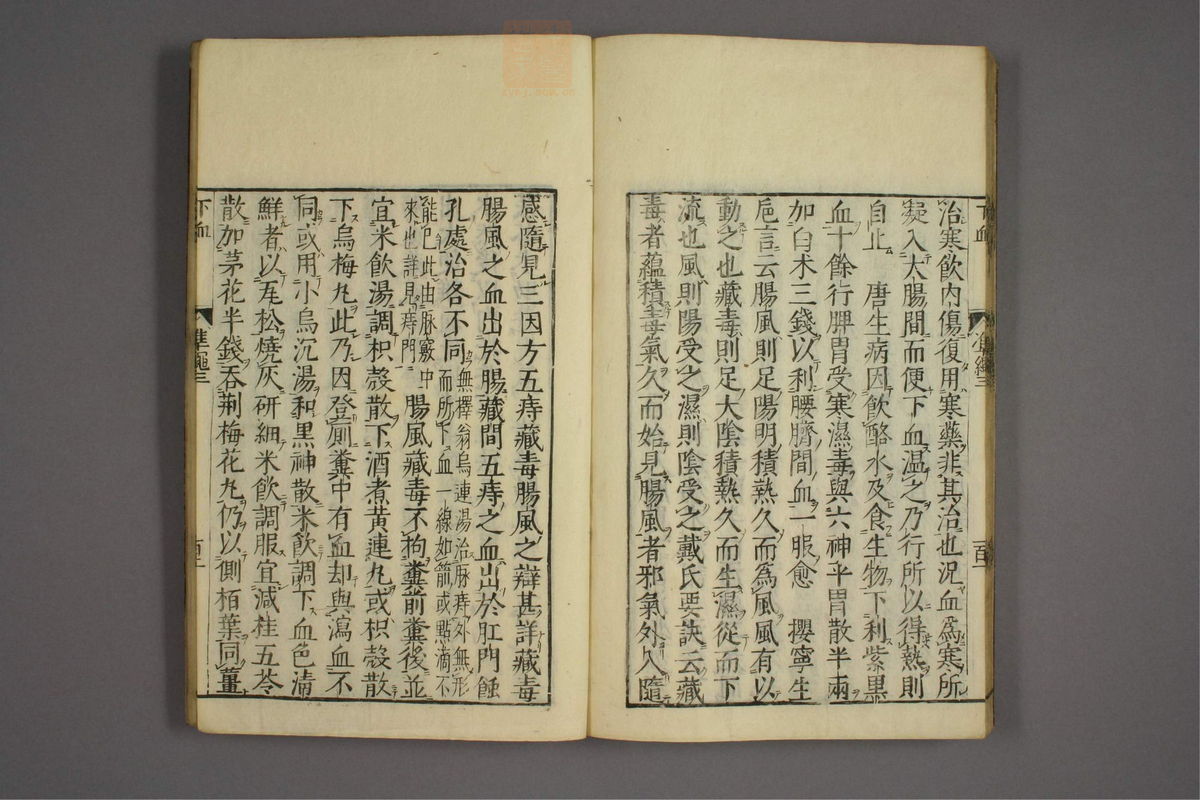 治寒飲内傷復用寒藥非其治也況血為寒所
凝入大腸間而便下血温之乃行所以得熱則
自止　唐生病因飲酪水及食生物下利紫黒
血十餘行脾胃受寒濕毒與六神平胃散半兩
加白术三錢以利腰臍間血一服愈　攖寧生
巵言云腸風則足陽明積熱久而為風風有以
動之也藏毒則足大陰積熱久而生濕從而下
流也風則陽受之濕則陰受之戴氏要訣云藏
毒者蘊積毒氣久而始見腸風者邪氣外入隨
感隨見三因方五痔藏毒腸風之辯甚詳藏毒
腸風之血出於腸藏間五痔之血出於肛門蝕
孔處治各不同無擇翁烏連湯治脉痔外無形
而所下血一線如箭或點滴不
能已此由脉竅中
來也詳見痔門　腸風藏毒不拘糞前糞後並
宜米飲湯調枳殻散下酒煮黄連丸或枳殻散
下烏梅丸此乃因登厠糞中有血却與瀉血不
同或用小烏沉湯和黒神散米飲調下血色清
鮮者以瓦松燒灰研細米飲調服宜減桂五苓
散加茅花半錢吞荆梅花丸仍以側栢葉同薑
下血
準繩三
下血
準繩三